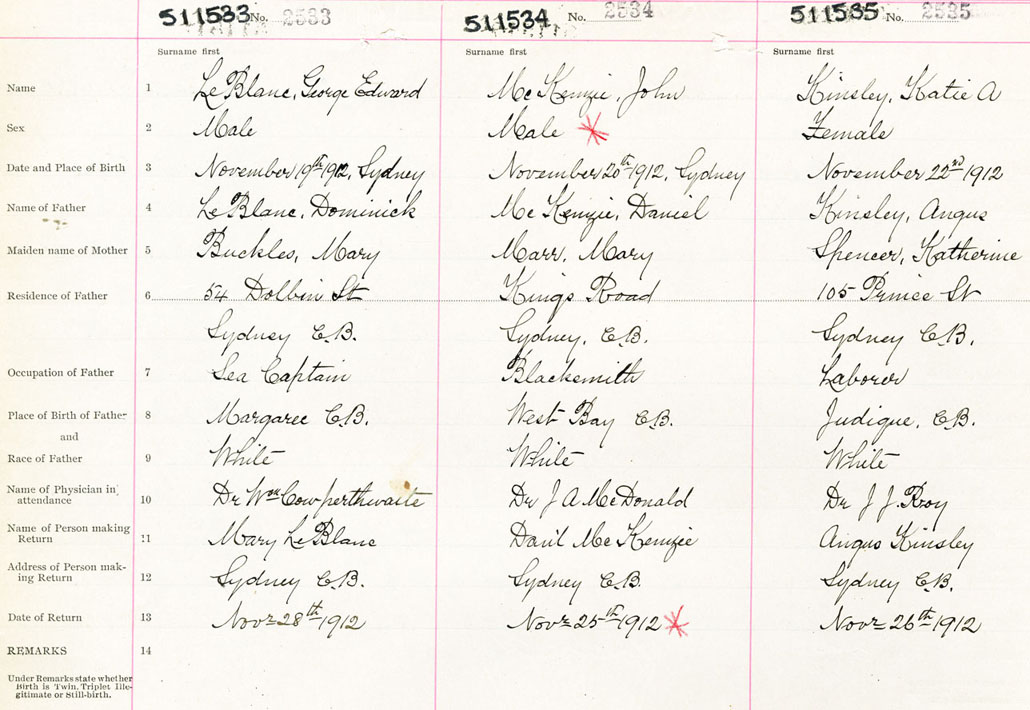 511533 No. 2533 511534 No. 2534 511535 No. 2535
Surname first Surname first Surname first
Name 1 LeBlanc, George Edward McKenzie, John Kinsley, Katie A
Sex 2 Male Male Female
Date and Place of Birth 3 November 19th 1912, Sydney November 20th 1912, Sydney November 22nd 1912
Name of Father 4 LeBlanc, Dominick McKenzie, Daniel Kinsley, Angus
Maiden name of Mother 5 Buckles, Mary Marr, Mary Spencer, Katherine
Residence of Father 6 54 Dolbin St Kings Road 105 Prince St
Sydney C.B. Sydney, C.B. Sydney C.B.
Occupation of Father 7 Sea Captain Blacksmith Laborer
Place of Birth of Father 8 Margaree C.B. West Bay C.B. Judique, C.B.
and
Race of Father 9 White White White
Name of Physician in attendance 10 Dr Wm Cowperthwaite Dr J A McDonald Dr J J. Roy
Name of Person making Return 11 Mary LeBlanc Danl McKenzie Angus Kinsley
Address of Person making Return 12 Sydney C.B. Sydney C.B. Sydney C.B.
Date of Return 13 Novr 28th 1912 Novr 25th 1912 Novr 26th 1912
REMARKS 14
Under Remarks state whether
Birth is Twin, Triplet Ille-
gitimate or Still-birth.